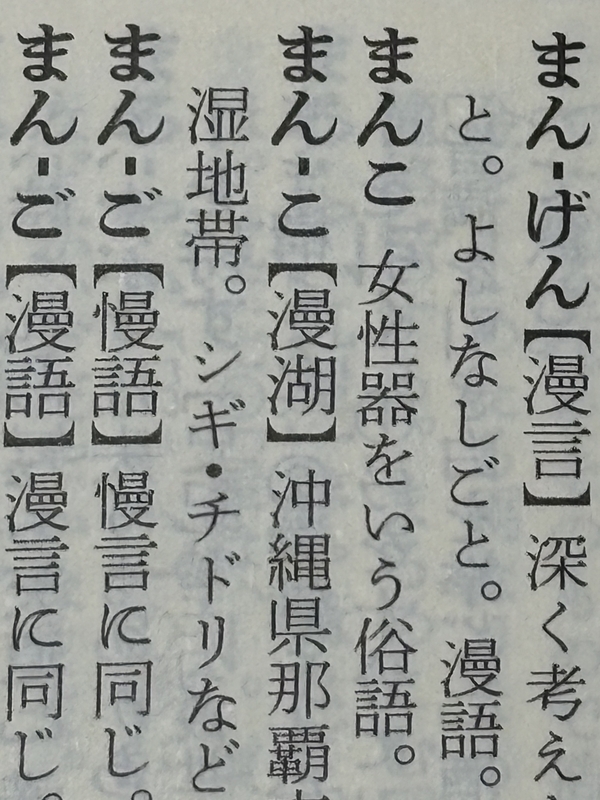 まん‐げん【漫言】深く考え
と。よしなしごと。漫語。
まんこ 女性器をいう俗語。
まん‐こ【漫湖】沖縄県那覇
湿地帯。シギ・チドリなど
まん‐ご【慢語】慢言に同じ。
まん‐ご【漫語】漫言に同じ。